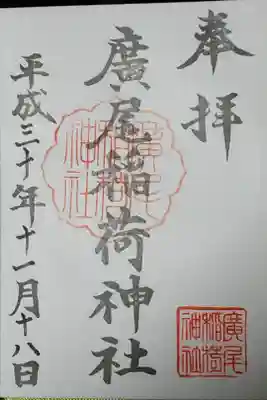 奉拝
廣尾稲荷神社
廣尾稲荷神社
廣尾稲荷神社
平成三十年十一月十八日